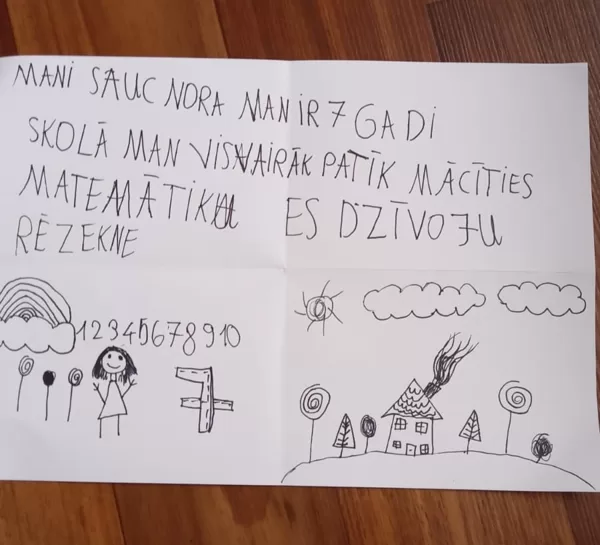 MANI SAUC NORA MAN IR 7 GADI
SKOLĀ MAN VISVAIRĀK PATĪK MĀCĪTIES
MATEMĀTIKU ES DZĪVOJU
RĒZEKNE
12345678910
7